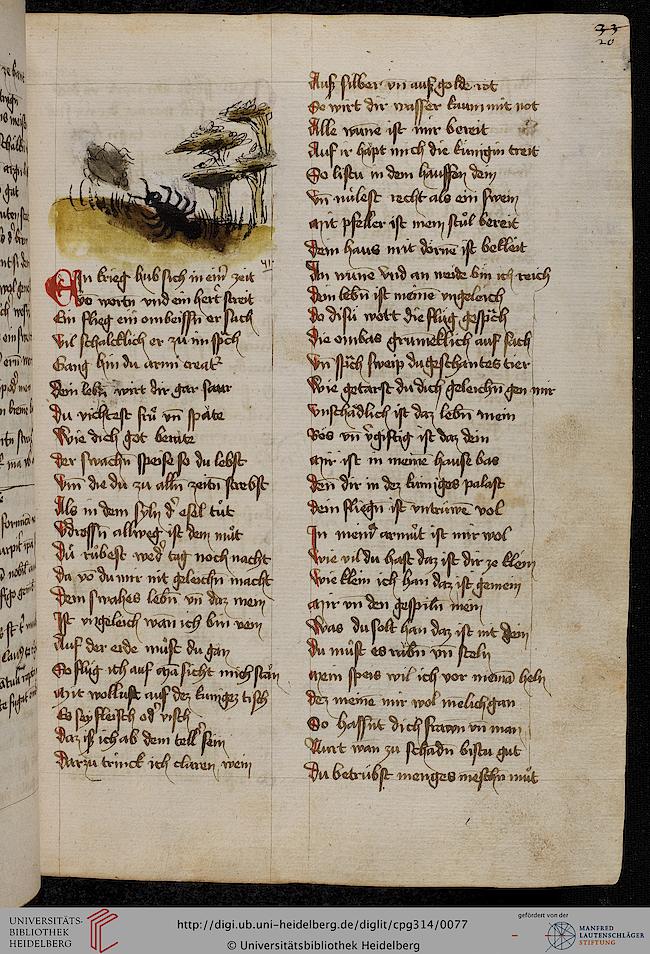 33
20
41
Ain krieg hub sich in einr zeit
Vo wortn vnd ein hert streit
Ein flieg ein ombeissn er sach
Vil schalcklich er zu im sprch
Gang hin du armi creatr
Dein lebn wirt dir gar saur
Du vichtest frü vn späte
Wie dich got berate
Der swachn speise so du lebst
Vm die du zu alln zeitn strebst
Als in dem syln dr esel tůt
Vdrossn allweg ist dein můt
Du růbest wedr tag noch nacht
Da vo du mir nit geleichn macht
Dein swahes lebn vn daz mein
Ist vngeleich wan ich bin vein
Auf der erde můst du gan
So flüg ich auf ma sicht mich stan
Mit wollust auf dez kunigez tisch
Es sey fleisch odr visch
Daz iss ich ab dem tellr sein
Darzu trinck ich claren wein
Auss silber vn auss golde rot
So wirt dir wasser kaum mit not
Alle wune ist mir bereit
Auf ir hapt mich die kunigin treit
So listu in dem hauffen dein
Vn nůlest recht als ein swein
Mit pfeller ist mein stůl bereit
Dein haus mit dörne ist belleit
An wune vnd an weide bin ich reich
Dein lebn ist meine vngeleich
Do disü wort die flüg gesprch
Die ombas grimeklich auf sach
Vn sprch sweig du geschantes tier
Wie getarst du dich geleichn gen mir
Vnschädlich ist daz lebn mein
Bös vn vgiftig ist daz dein
Mir ist in meine hause bas
Den dir in dez kuniges palast
Dein fliegn ist vntruwe vol
In meinr armůt ist mir wol
Wie vil du hast daz ist dir ze klein
Wie klein ich han daz ist gemein
Mir vn den gespiln mein
Was du solt han daz ist nit dein
Du můst es rabn vn steln
Mein speis wil ich vor niema heln
Dez meine mir wol melich gan
So hassnt dich frawn vn man
Nurt wan zu schadn bistu gut
Du betrůbst menges meschn můt
UNIVERSITÄTS-
BIBLIOTHEK
HEIDELBERG
http://digi.ub.uni-heidelberg.de/diglit/cpg314/0077
© Universitätsbibliothek Heidelberg
gefördert von der
MANFRED
LAUTENSCHLÄGER
STIFTUNG